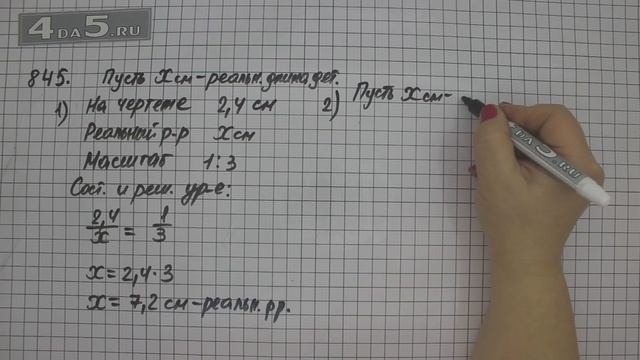 4DA5.RU
845. Пусть X см – реальн. длина дет.
1) На чертеже 2,4 см
Реальный р-р X см
Масштаб 1:3
Сост. и реш. ур-е:
2,4/x = 1/3
x = 2,4·3
x = 7,2 см – реальн. рр.
2) Пусть X см –
DA5.RU